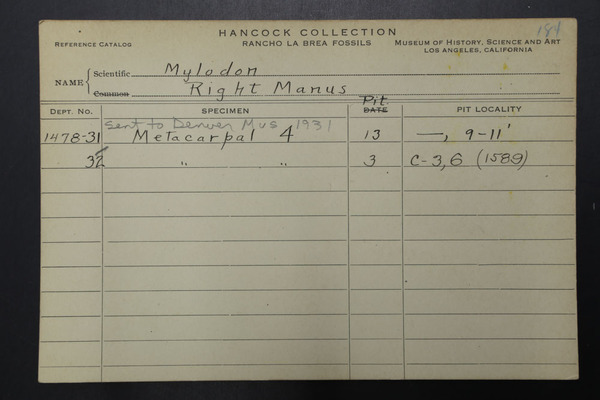 HANCOCK COLLECTION 184
REFERENCE CATALOG RANCHO LA BREA FOSSILS MUSEUM OF HISTORY, SCIENCE AND ART
LOS ANGELES, CALIFORNIA
NAME { Scientific Mylodon
Common Right Manus
Pit
DEPT. NO. SPECIMEN DATE PIT LOCALITY
sent to Denver Mus 1931
1478-31 Metacarpal 4 13 —, 9-11'
32 " " 3 C-3,6 (1589)